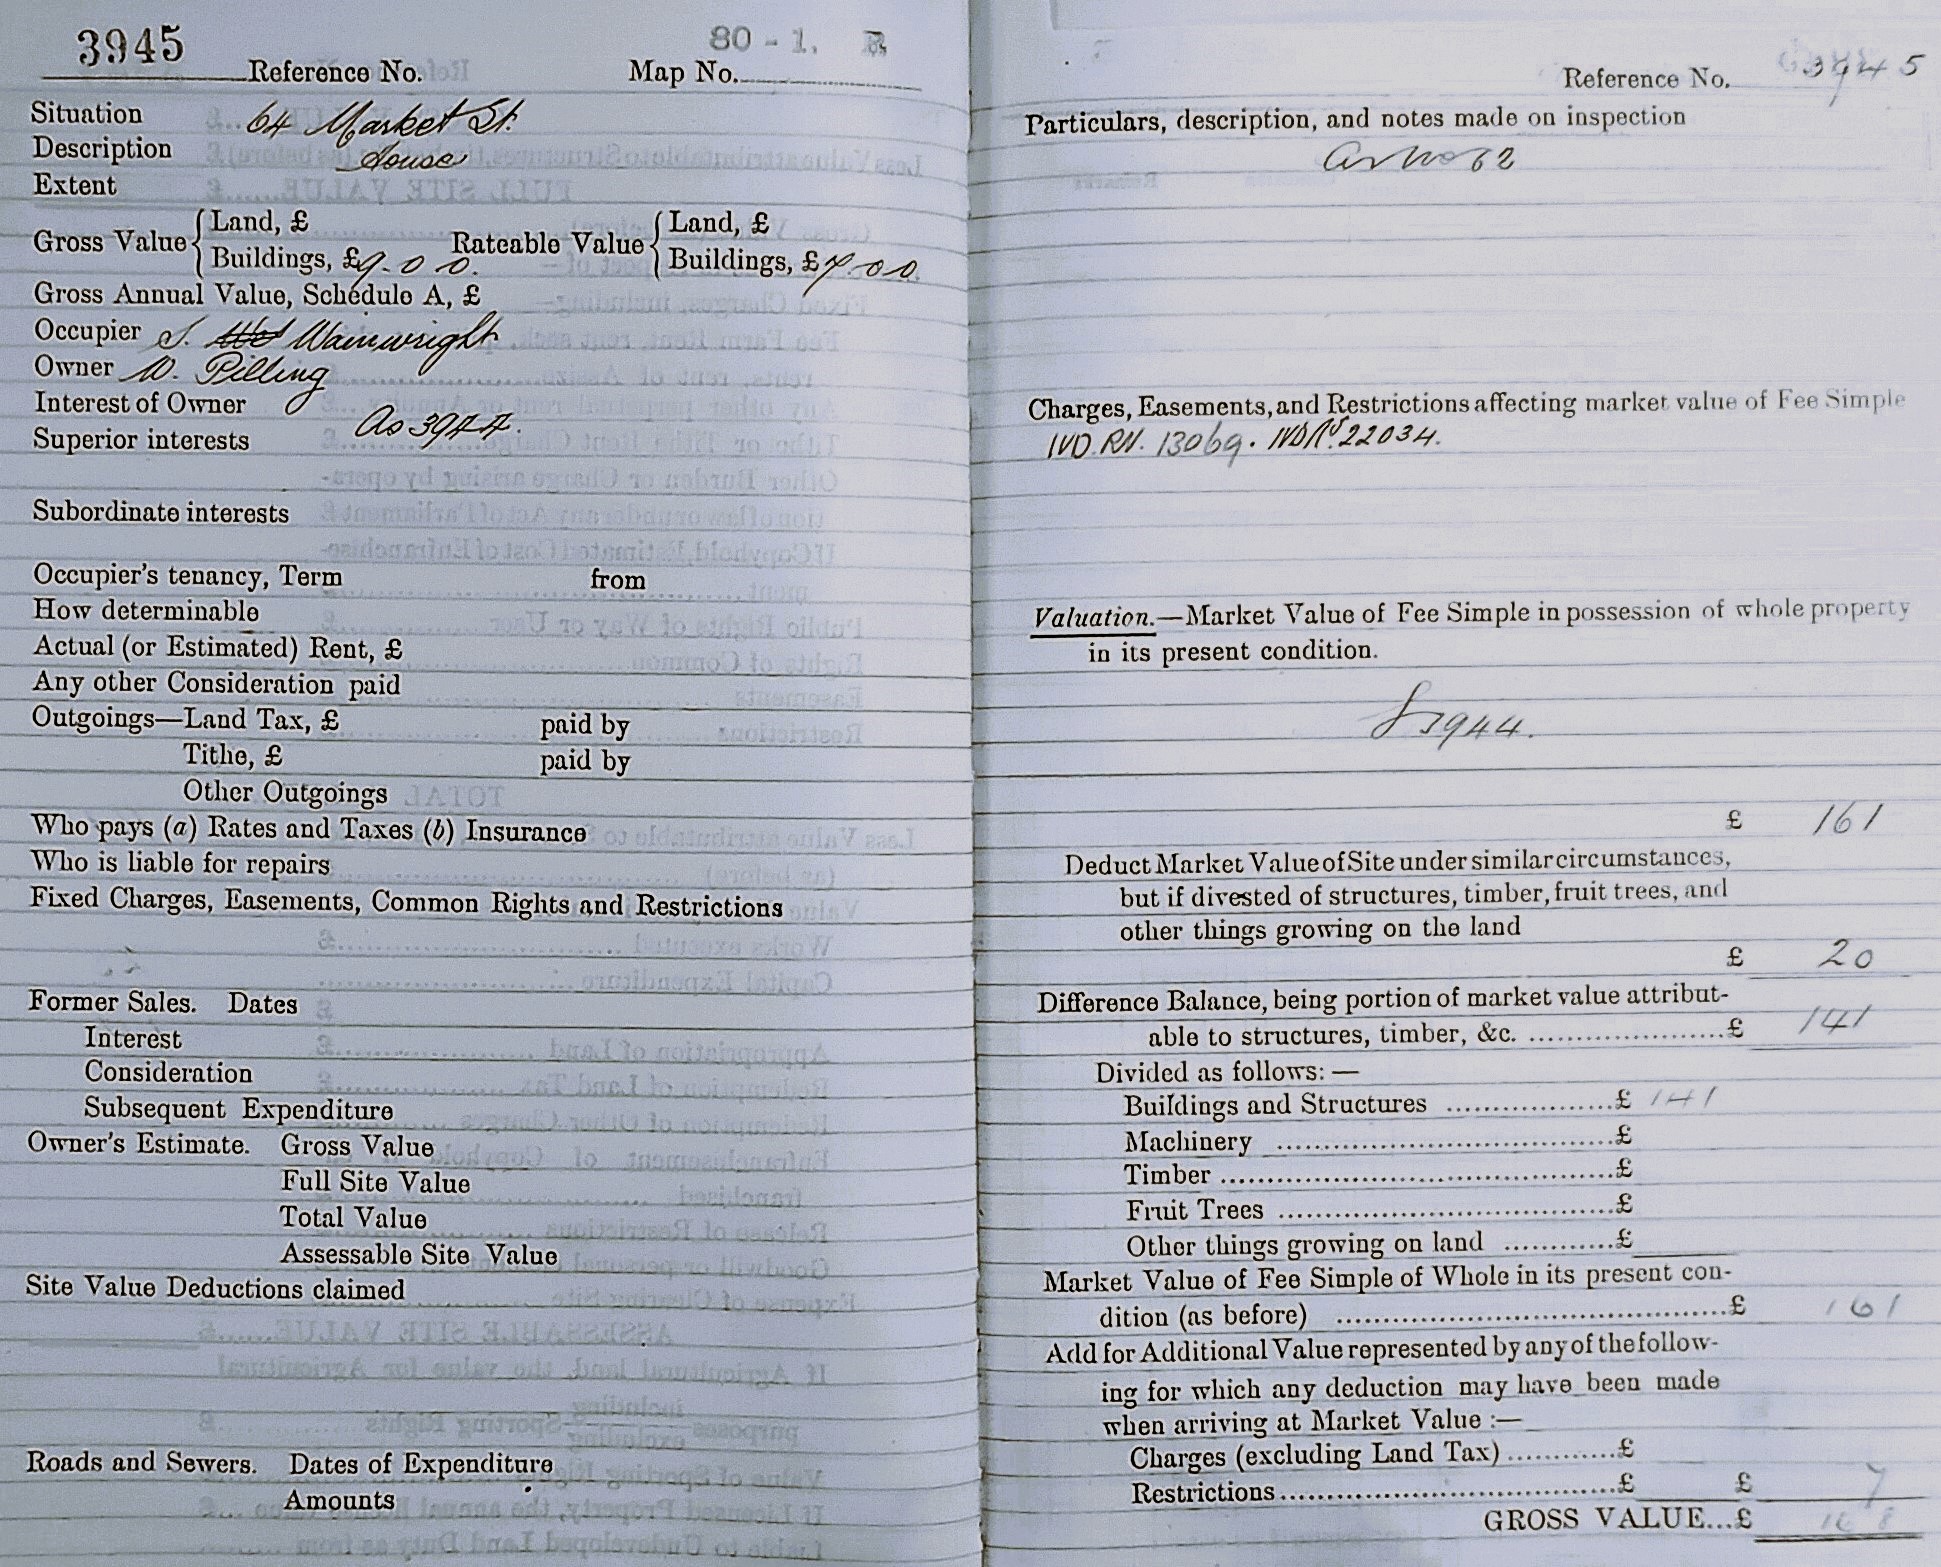 3945 Reference No. 80 - 1. Map No.
Situation 64 Market St.
Description House
Extent
Gross Value { Land, £ Rateable Value { Land, £
Buildings, £9.0.0. Buildings, £7.0.0.
Gross Annual Value, Schedule A, £
Occupier S. Wainwright
Owner W. Pilling
Interest of Owner
Superior interests As 3944.
Subordinate interests
Occupier's tenancy, Term from
How determinable
Actual (or Estimated) Rent, £
Any other Consideration paid
Outgoings—Land Tax, £ paid by
Tithe, £ paid by
Other Outgoings
Who pays (a) Rates and Taxes (b) Insurance
Who is liable for repairs
Fixed Charges, Easements, Common Rights and Restrictions
Former Sales. Dates
Interest
Consideration
Subsequent Expenditure
Owner's Estimate. Gross Value
Full Site Value
Total Value
Assessable Site Value
Site Value Deductions claimed
Roads and Sewers. Dates of Expenditure
Amounts
Reference No. 3945
Particulars, description, and notes made on inspection
as No 62
Charges, Easements, and Restrictions affecting market value of Fee Simple
IVD. RN. 13069. IVD RN. 22034.
Valuation.—Market Value of Fee Simple in possession of whole property
in its present condition.
3944.
£ 161
Deduct Market Value of Site under similar circumstances,
but if divested of structures, timber, fruit trees, and
other things growing on the land
£ 20
Difference Balance, being portion of market value attribut-
able to structures, timber, &c. ........................£ 141
Divided as follows: —
Buildings and Structures ....................£ 141
Machinery ........................................£
Timber ................................................£
Fruit Trees ........................................£
Other things growing on land ............£
Market Value of Fee Simple of Whole in its present con-
dition (as before) ................................................£ 161
Add for Additional Value represented by any of the follow-
ing for which any deduction may have been made
when arriving at Market Value :—
Charges (excluding Land Tax) ............£
Restrictions ........................................£ £ 7
GROSS VALUE...£ 168